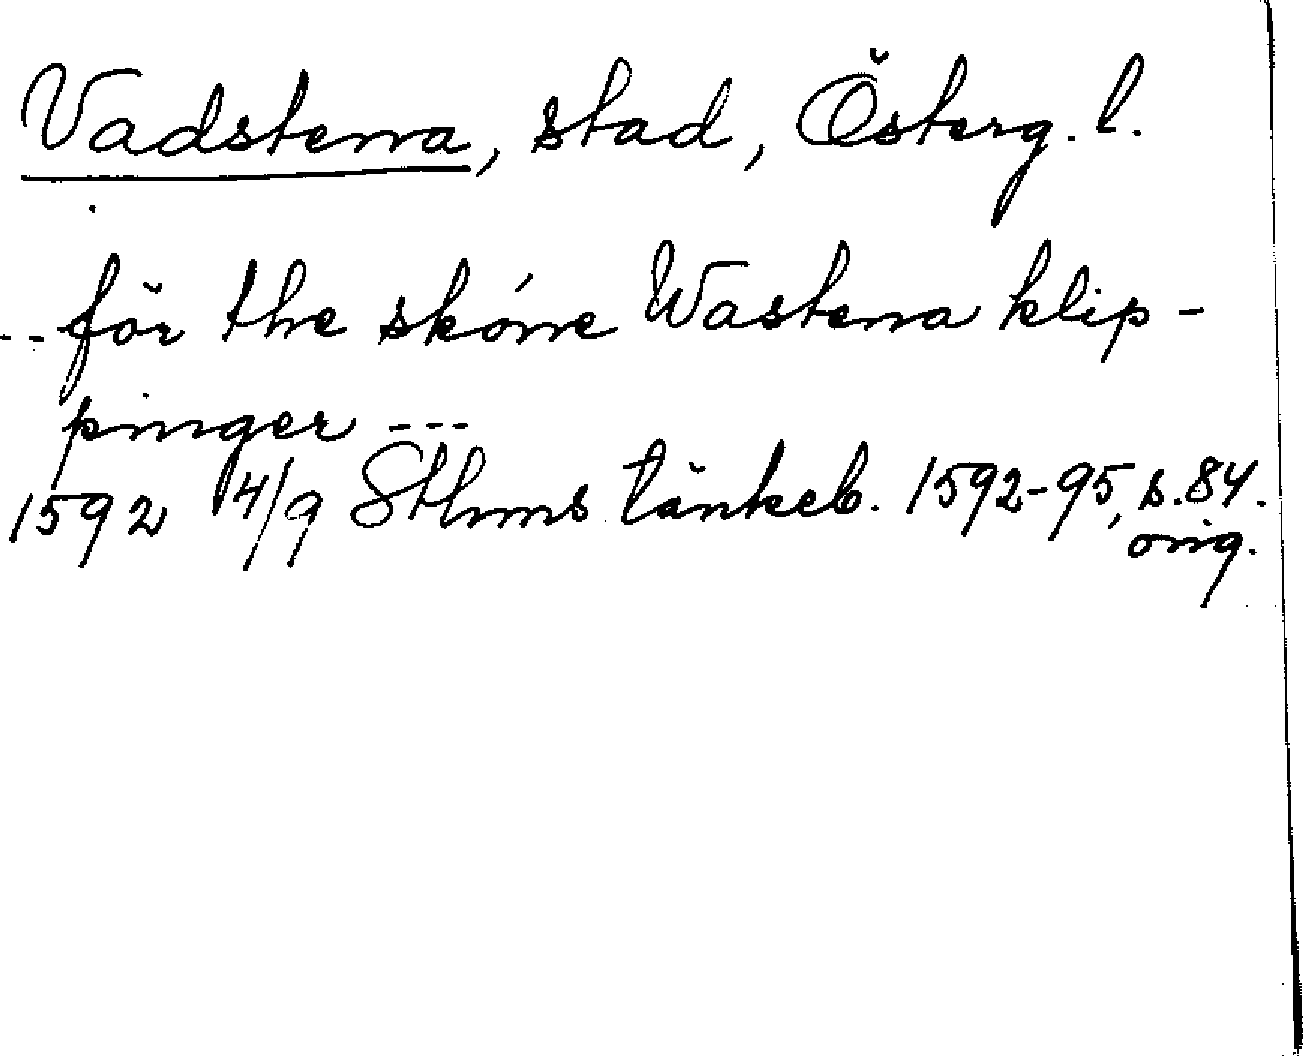 Vadstena, stad, Österg. l.
-- för the skóne Wastena klip-
pinger ---
1592 14/9 Sthms tänkeb. 1592-95, s. 84.
orig.